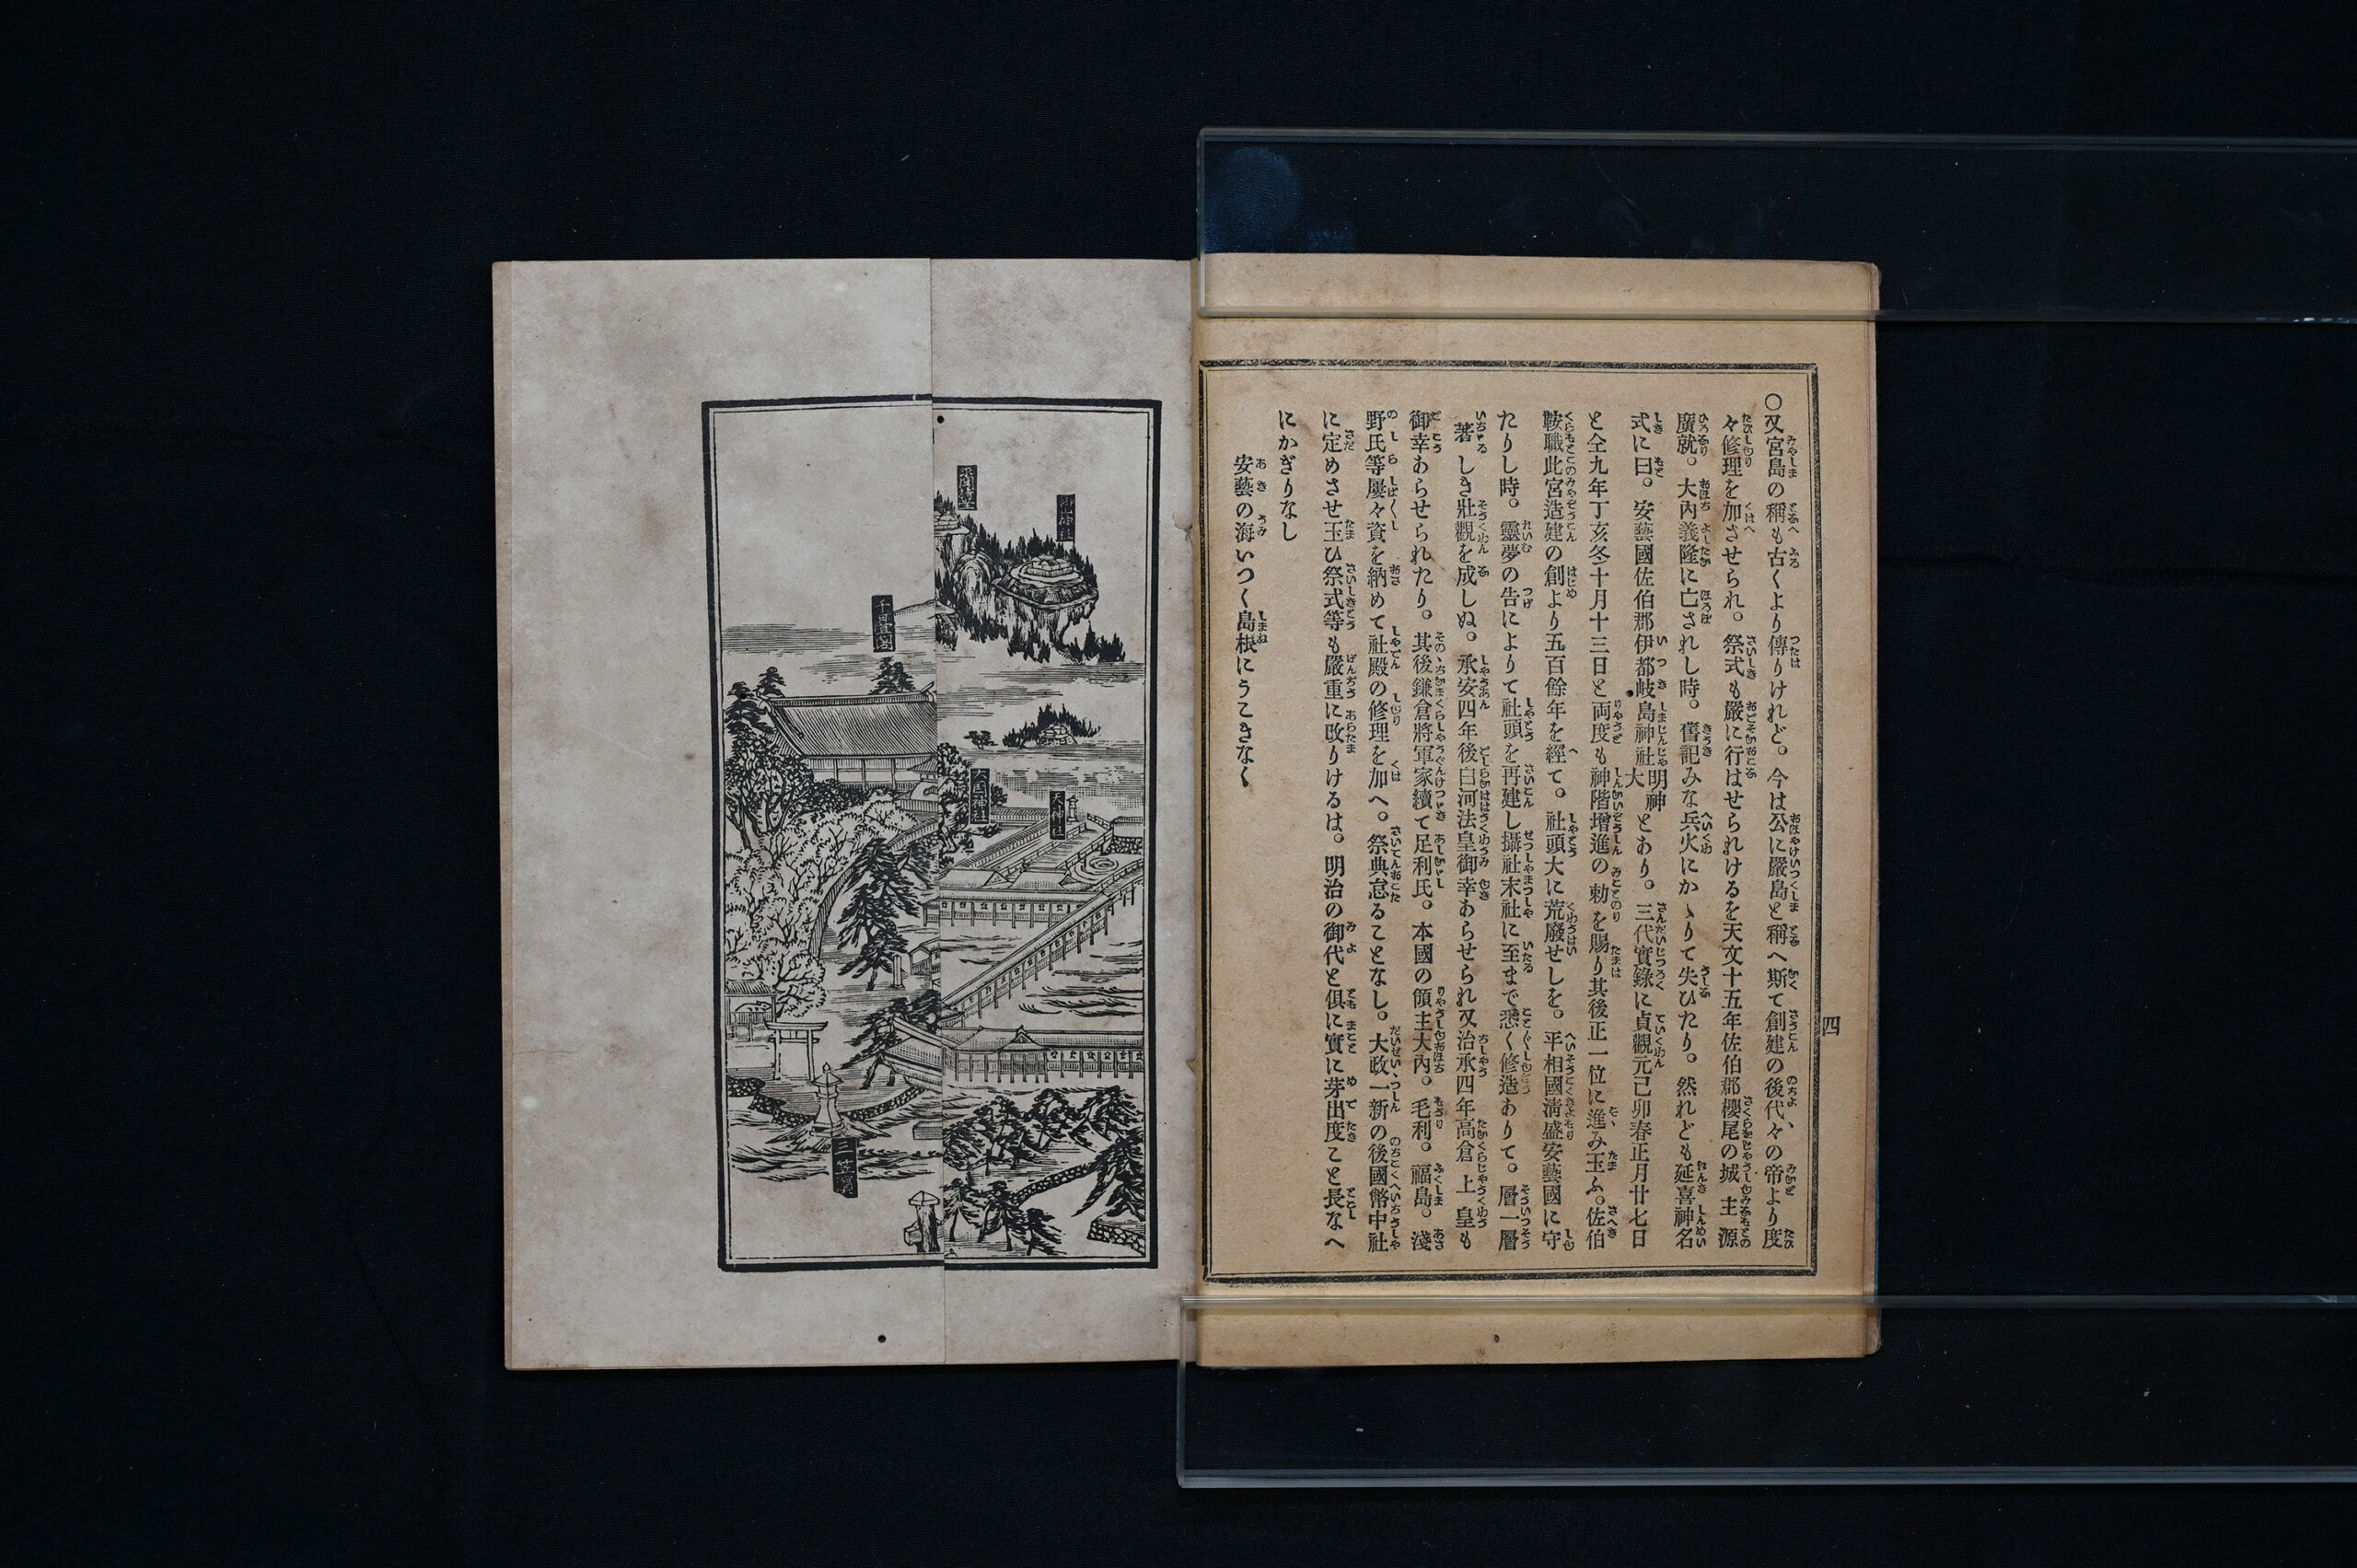 四
〇又宮島の稱も古くより傳りけれど。今は公に嚴島と稱へ斯て創建の後代々の帝より度
々修理を加させられ。祭式も嚴に行はせられけるを天文十五年佐伯郡櫻尾の城主源
廣就。大內義隆に亡されし時。舊記みな兵火にかゝりて失ひたり。然れども延喜神名
式に曰。安藝國佐伯郡伊都岐島神社明神大とあり。三代實錄に貞觀元己卯春正月廿七日
と仝九年丁亥冬十月十三日と両度も神階增進の勅を賜り其後正一位に進み玉ふ。佐伯
鞍職此宮造建の創より五百餘年を經て。社頭大に荒廢せしを。平相國淸盛安藝國に守
たりし時。靈夢の告によりて社頭を再建し攝社末社に至まで悉く修造ありて。層一層
著しき壯觀を成しぬ。承安四年後白河法皇御幸あらせられ又治承四年高倉上皇も
御幸あらせられたり。其後鎌倉將軍家續て足利氏。本國の領主大內。毛利。福島。淺
野氏等屢々資を納めて社殿の修理を加へ。祭典怠ることなし。大政一新の後國幣中社
に定めさせ玉ひ祭式等も嚴重に改りけるは。明治の御代と俱に實に芽出度こと長なへ
にかぎりなし
安藝の海いつく島根にうこきなく
御山神社
天神社
大国神社
千畳閣
三笠濱